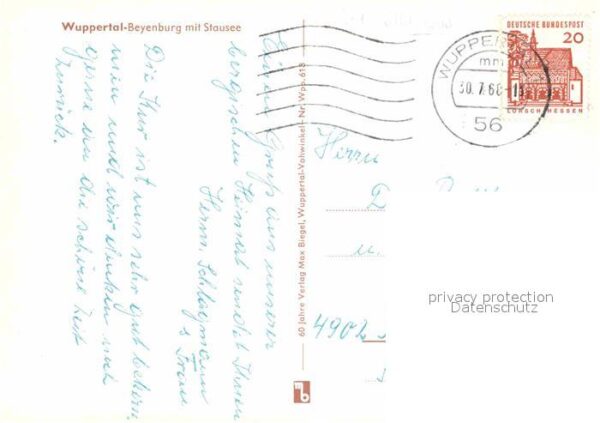 Wuppertal-Beyenburg mit Stausee
Einen Gruß aus unserer
bergischen Heimat sendet Ihnen
Herm. Schlagmann
u Frau
Die Kur ist uns sehr gut bekom
men und wir denken noch
gerne an die schöne Zeit
zurück.
60 Jahre Verlag Max Biegel, Wuppertal-Vohwinkel · Nr. Wpp. 613
mb
WUPPER
mm
30.7.66-15
56
DEUTSCHE BUNDESPOST
20
LORSCH/HESSEN
Herrn
u.
4902
privacy protection
Datenschutz